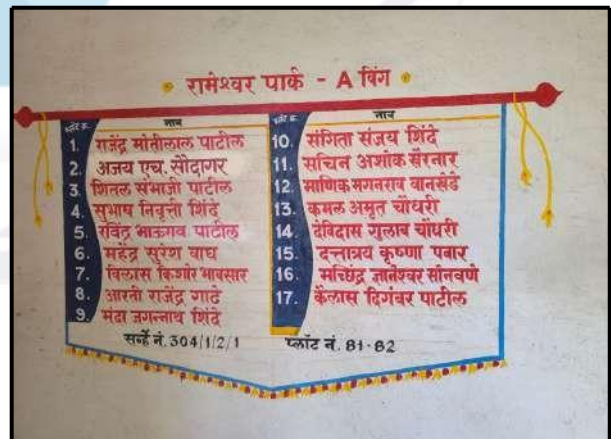 रामेश्वर पार्क - A विंग
फ्लॅट क्र. नाव
1. राजेंद्र मोतीलाल पाटील
2. अजय एच. सौदागर
3 शितल संभाजी पाटील
4. सुभाष निवृत्ती शिंदे
5. रविंद्र भाऊराव पाटील
6. महेंद्र सुरेश वाघ
7. विलास किशोर भावसार
8. आरती राजेंद्र गाढे
9. मंदा जगन्नाथ शिंदे
फ्लॅट क्र. नाव
10. संगिता संजय शिंदे
11. सचिन अशोक सैरनार
12. माणिक मगनराव वानखेडे
13. कमल अमृत चौधरी
14. देविदास गुलाब चौधरी
15. दत्तात्रय कृष्णा पवार
16. मच्छिंद्र ज्ञानेश्वर सोनवणे
17. कैलास दिगंबर पाटील
सर्व्हे नं. 304/1/2/1 प्लॉट नं. 81-82